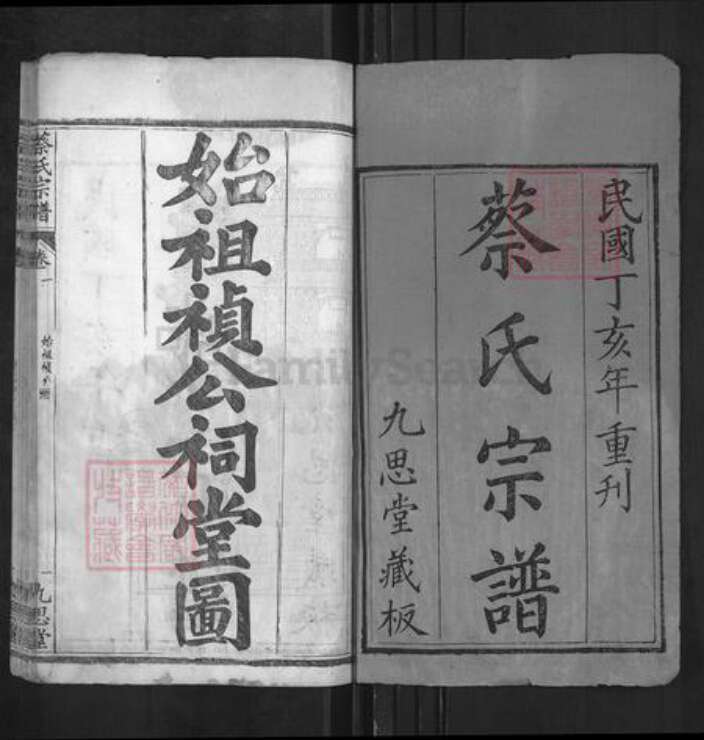 民國丁亥年重刊
蔡氏宗譜
九思堂藏板
始祖禎公祠堂圖
蔡氏宗譜
卷一
九思堂
FamilySearch